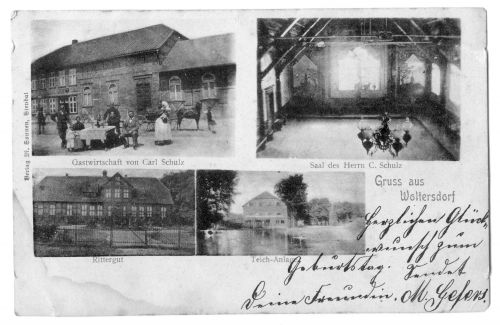 Gastwirtschaft von Carl Schulz
Saal des Herrn C. Schulz
Verlag W.
Gruss aus
Woltersdorf
Rittergut
Teich-Anlage
Herzlichen Glück-
wunsch zum
Geburtstag. Sendet
Deine Freundin. M.